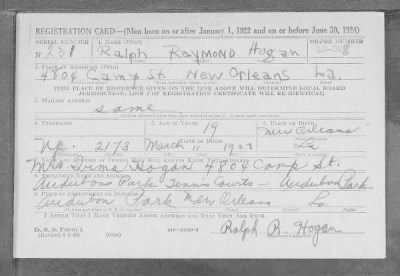 REGISTRATION CARD—(Men born on or after January 1, 1922 and on or before June 30, 1924)
SERIAL NUMBER 1. NAME (Print) ORDER NUMBER
N 231 Ralph Raymond Hogan
2. PLACE OF RESIDENCE (Print)
4804 Camp St. New Orleans La.
[THE PLACE OF RESIDENCE GIVEN ON THE LINE ABOVE WILL DETERMINE LOCAL BOARD
JURISDICTION; LINE 2 OF REGISTRATION CERTIFICATE WILL BE IDENTICAL]
3. MAILING ADDRESS
same
4. TELEPHONE 5. AGE IN YEARS 6. PLACE OF BIRTH
19 New Orleans
DATE OF BIRTH
2173 March 11 1923 La
7. NAME AND ADDRESS OF PERSON WHO WILL ALWAYS KNOW YOUR ADDRESS
Mrs. Irma Hogan 4804 Camp St.
8. EMPLOYER'S NAME AND ADDRESS
Audubon Park Tennis Courts — Audubon Park
9. PLACE OF EMPLOYMENT OR BUSINESS
Audubon Park New Orleans La
I AFFIRM THAT I HAVE VERIFIED ABOVE ANSWERS AND THAT THEY ARE TRUE.
D. S. S. Form 1
Ralph R. Hogan